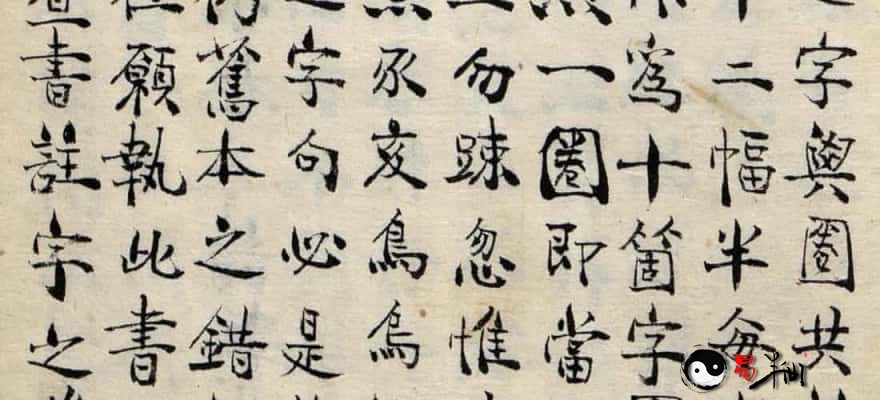 字與圈共
二幅半每
寫十箇字
一圈即當
勿踈忽惟
豕亥鳥烏
字句必是
舊本之錯
願執此書
書註字之
易